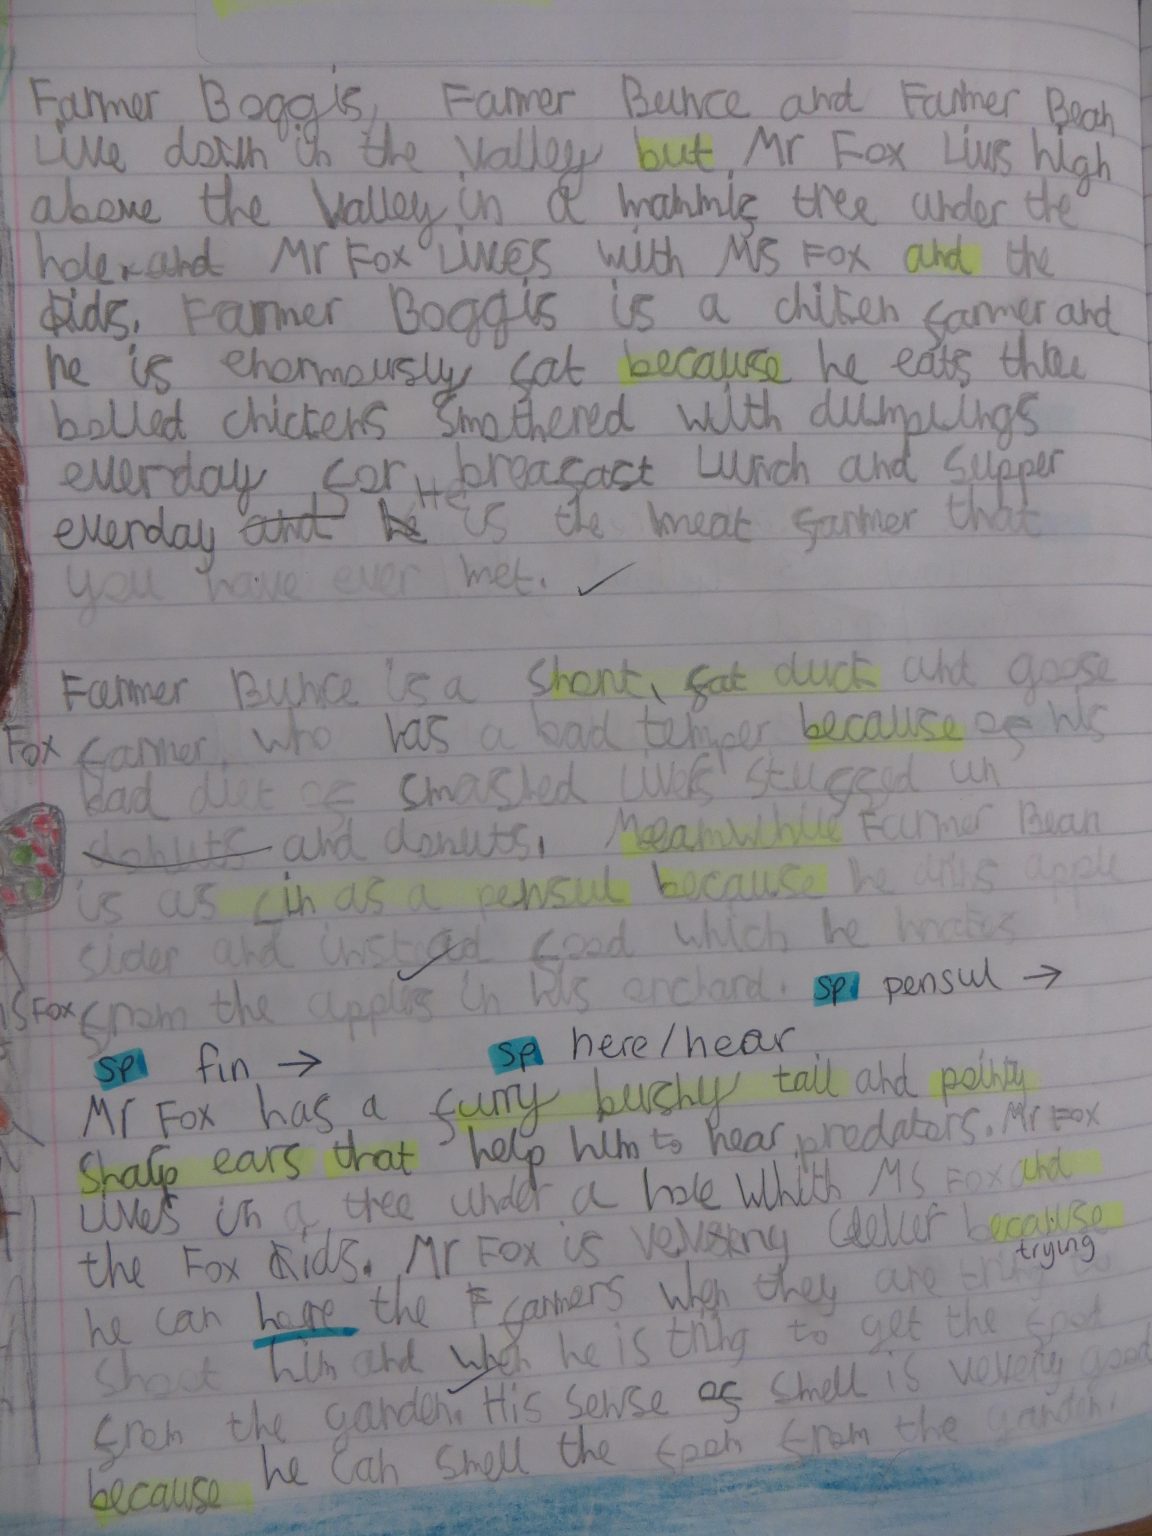 Farmer Boggis, Farmer Bunce and Farmer Bean
live down in the valley but Mr Fox livs high
above the valley in a tree under the
hole and Mr Fox lives with Ms Fox and the
kids. Farmer Boggis is a chiken farmer and
he is enormously fat because he eats three
boiled chickens smothered with dumplings
everday for breafast lunch and supper
everday and he He is the meat farmer that
you have ever met.
Farmer Bunce is a short, fat duck and goose
Fox farmer who has a bad temper because of his
bad diet of smashed livers stuffed in
donuts and donuts. Meanwhile Farmer Bean
is as fin as a pensul because he apple
sider and insted food which he
s Fox from the apples in his orchard. sp pensul →
sp fin → sp here/hear
Mr Fox has a furry bushy tail and pointy
sharp ears that help him to hear predators. Mr Fox
lives in a tree under a hole whith Ms Fox and
the Fox kids. Mr Fox is because
trying
he can the farmers when they are
shoot him and when he is tring to get the food
from the garden. His sense of smell is good
because he can smell the from the garden.